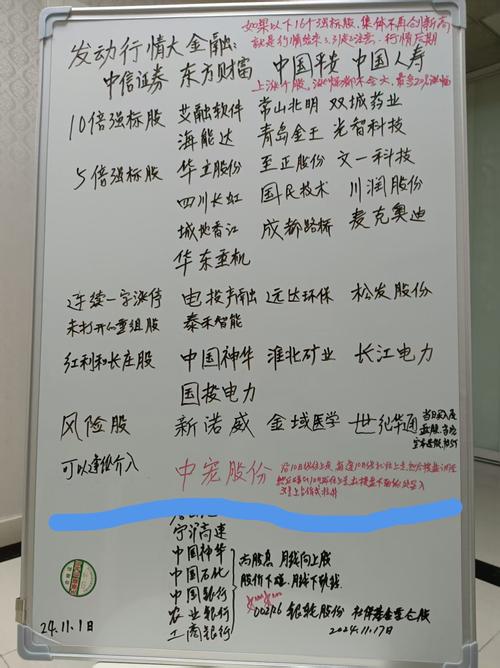 如果以下16个强标股,集体不再创新高
就是行情结束,引起注意,行情后期
发动行情大金融:
中信证券 东方财富 中国平安 中国人寿
上涨个股,涨幅都不会大,最多20%涨幅
10倍强标股 艾融软件 常山北明 双城药业
海能达 青岛金王 光智科技
5倍强标股 华立股份 至正股份 文一科技
四川长虹 国民技术 川润股份
城地香江 成都路桥 麦克奥迪
华东重机
连续一字涨停 电投产融 远达环保 松发股份
未打开的重组股 泰禾智能
红利和长庄股 中国神华 淮北矿业 长江电力
国投电力
风险股 新诺威 金域医学 世纪华通
可以逢低介入 中宠股份
宁沪高速
中国神华 高股息 月线向上股
中国石化 股价下堆 月线下
中国银行
农业银行 002126 银轮股份 社保基金重仓股
工商银行
24.11.1日 2024.11.17日